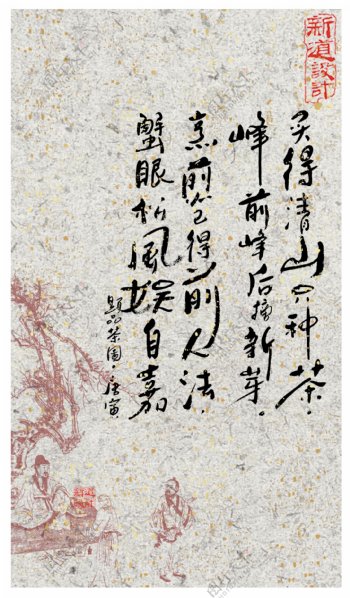 新道設計
买得清山只种茶。
峰前峰后摘新芽。
烹煎已得前人法。
蟹眼松風娱自嘉
题品茶圖·唐寅